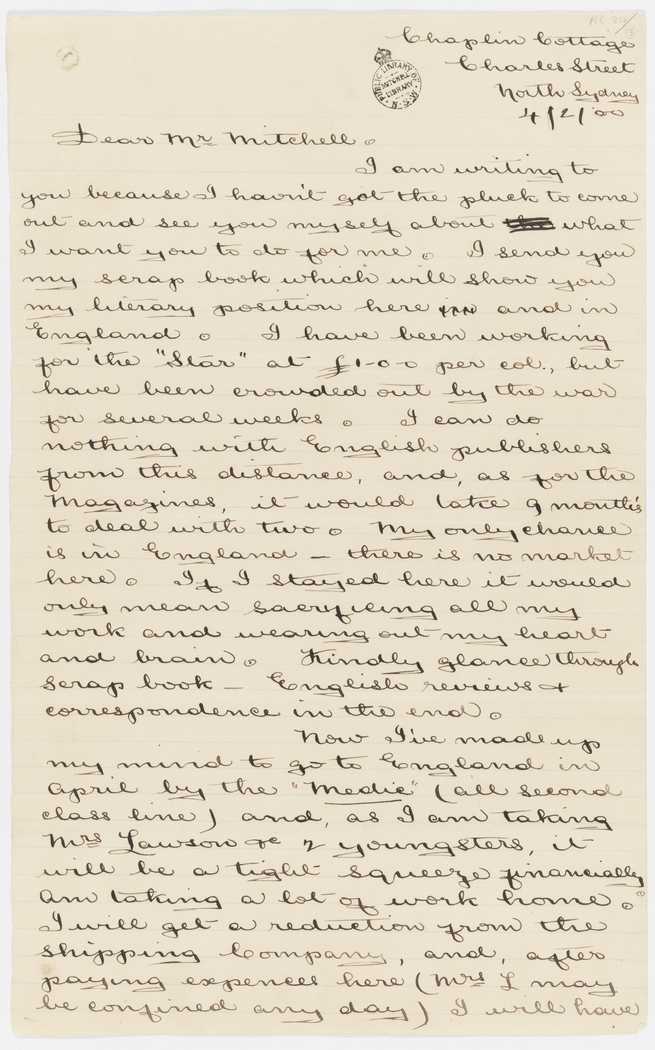 Chaplin Cottage
Charles Street
North Sydney
4/2/00
PUBLIC LIBRARY OF N·S·W
MITCHELL LIBRARY
Dear Mr Mitchell.
I am writing to
you because I havn't got the pluck to come
out and see you myself about the what
I want you to do for me. I send you
my scrap book which will show you
my literary position here and in
England. I have been working
for the "Star" at £1-0-0 per col., but
have been crowded out by the war
for several weeks. I can do
nothing with English publishers
from this distance, and, as for the
Magazines, it would take 9 month's
to deal with two. My only chance
is in England — there is no market
here. If I stayed here it would
only mean sacrificing all my
work and wearing out my heart
and brain. Kindly glance through
scrap book — English reviews &
correspondence in the end.
Now I've made up
my mind to go to England in
April by the "Medic" (all second
class line) and, as I am taking
Mrs Lawson & 2 youngsters, it
will be a tight squeeze financially.
Am taking a lot of work home.
I will get a reduction from the
shipping Company, and, after
paying expences here (Mrs L may
be confined any day) I will have